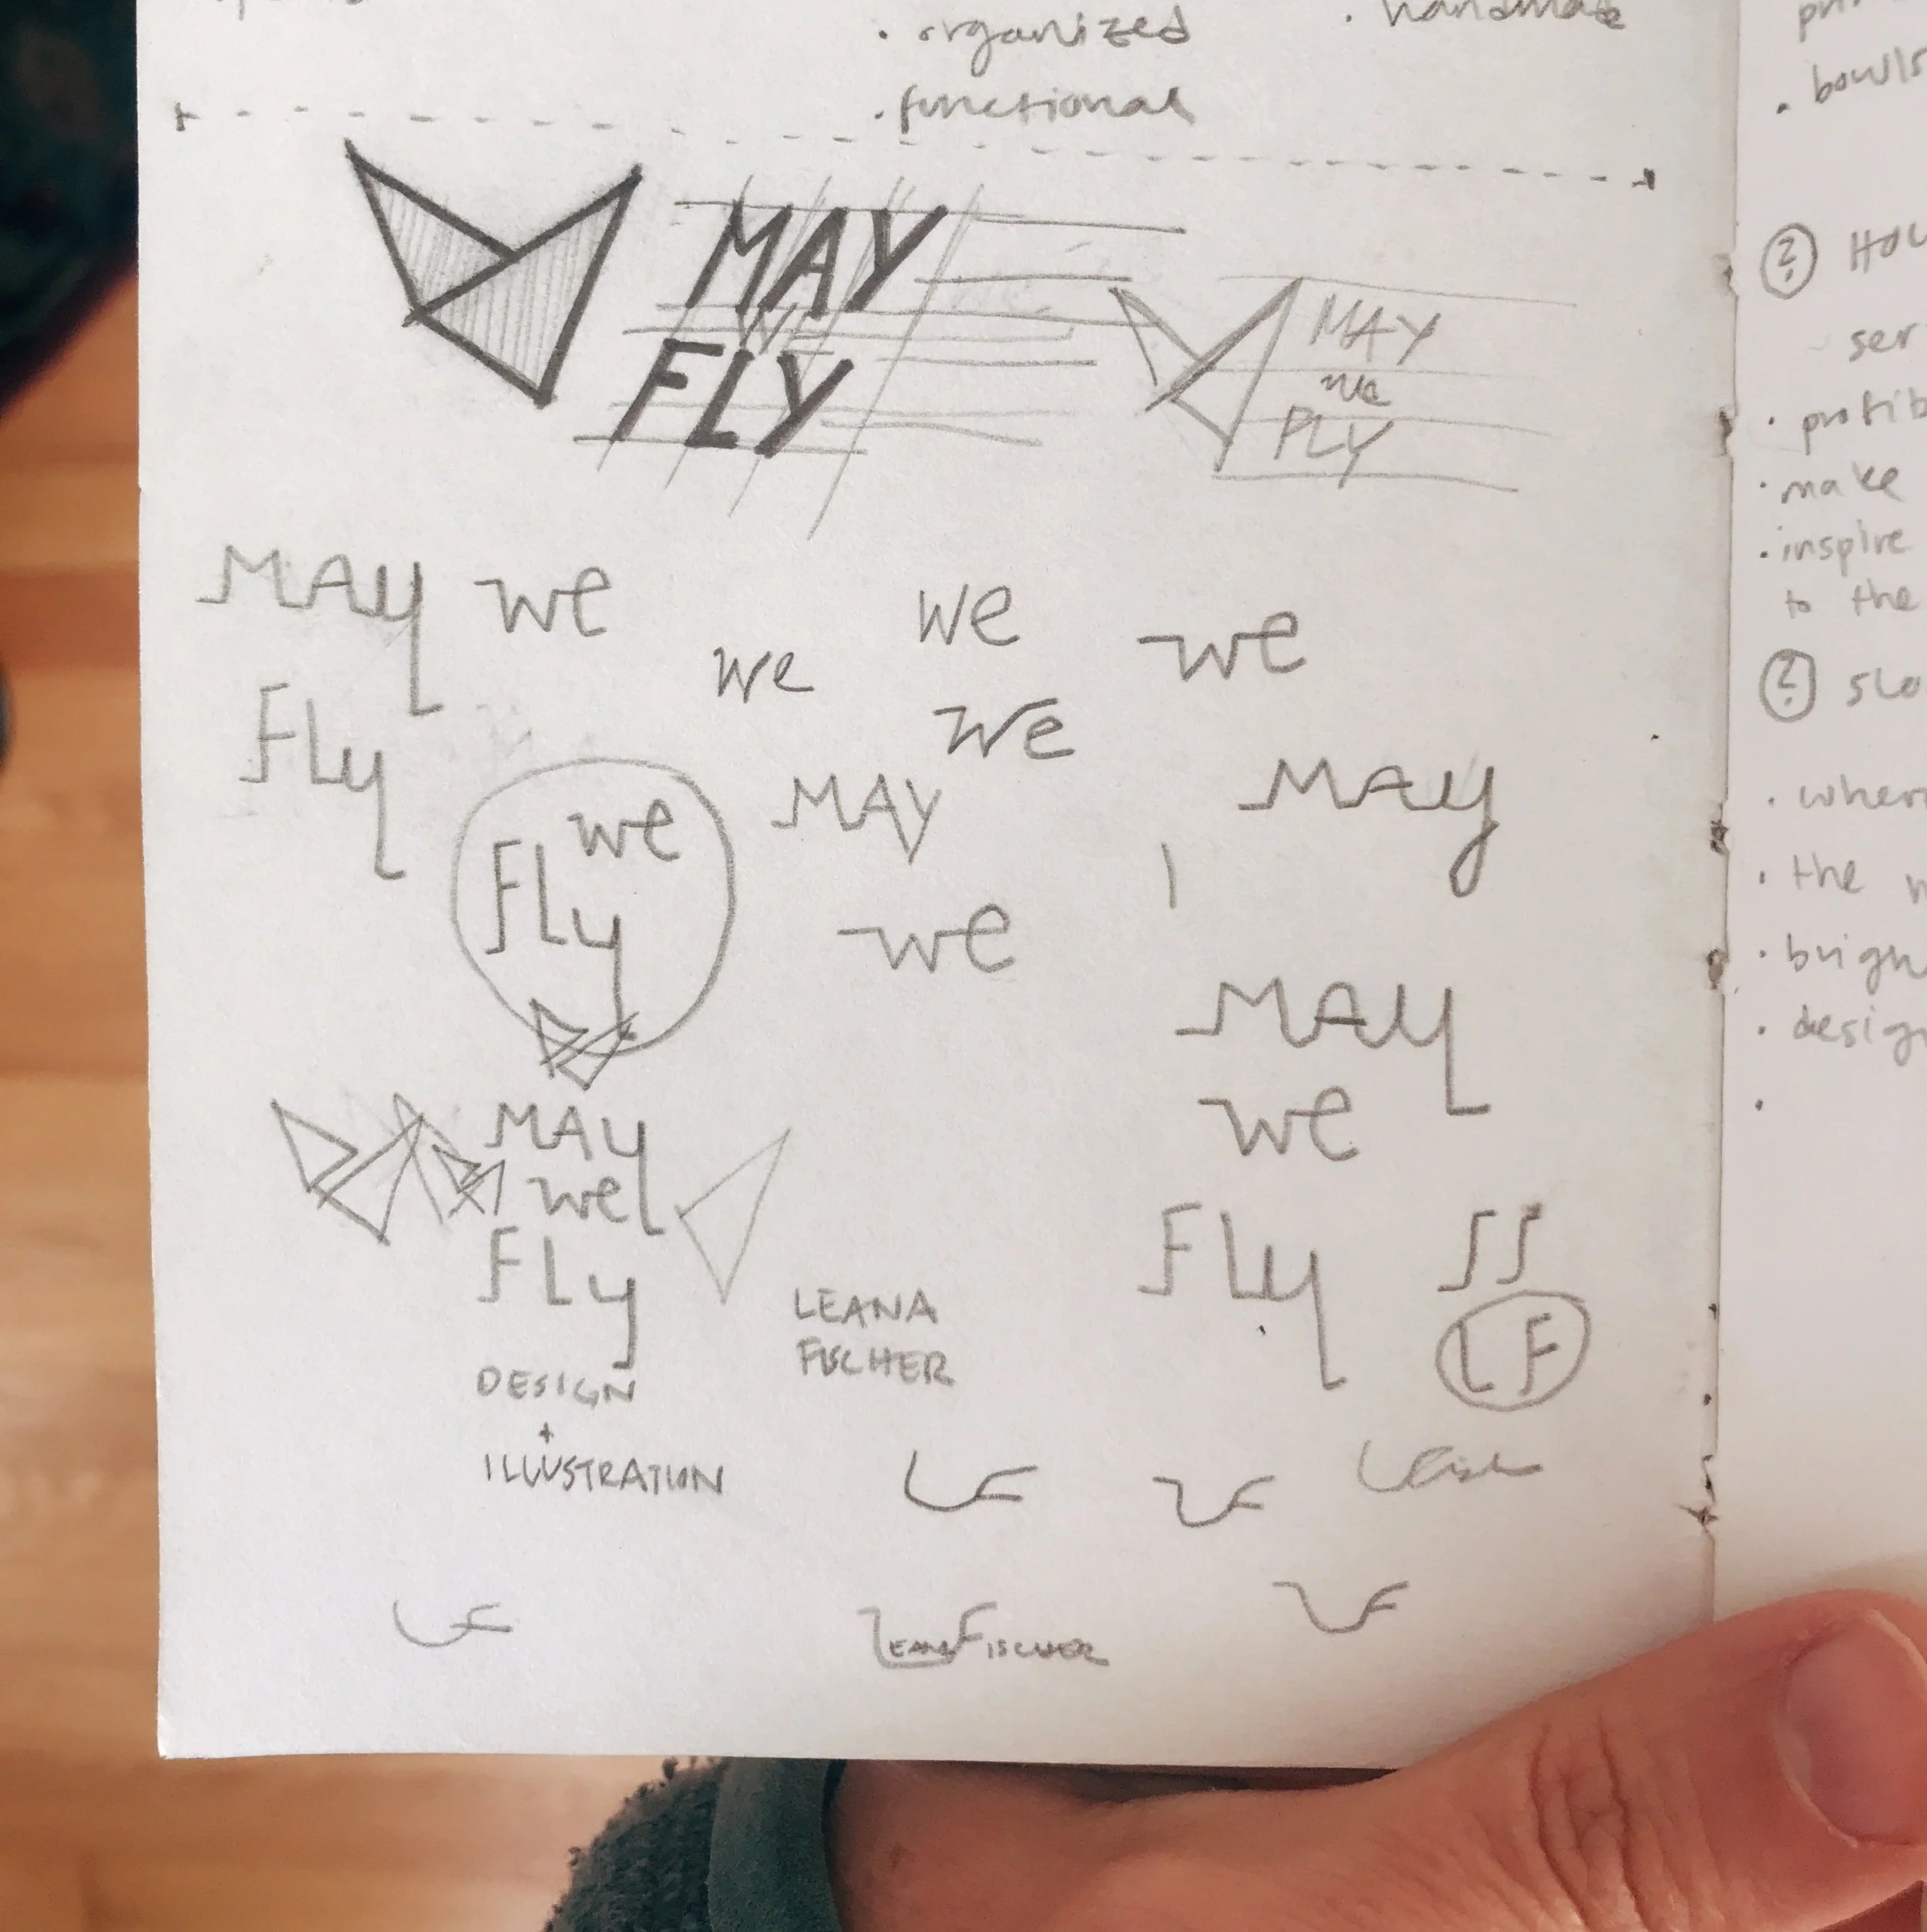 . organized
. handmade
. functional
MAY
we
FLY
MAY
we
FLY
MAY we
we
we
we
we
FLy
we
FLy
MAY
MAY
we
MAY
we
FLy
MAy
we
FLy
DESIGN
+
ILLUSTRATION
LEANA
FISCHER
SS
LF
LF
LF
LF
LEANA FISCHER
LF
. bowls
?
ser
. make
. inspire
to the
?
slo
. the
. design